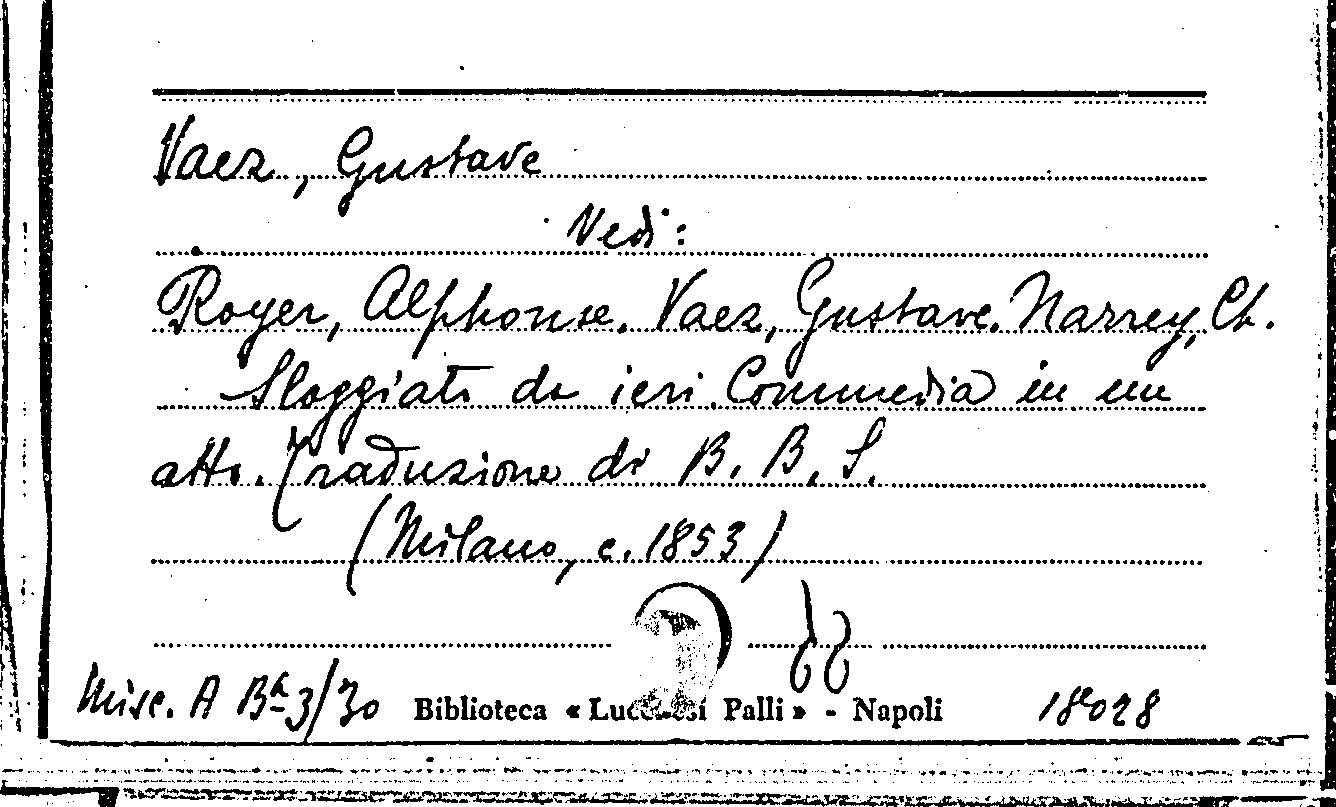 Vaez, Gustave
Vedi:
Royer, Alphonse. Vaez, Gustave. Narrey, Ch.
Sloggiati da ieri. Commedia in un
atto. Traduzione di B. B. S.
(Milano, c. 1853)
Misc. A Bª 3/30 Biblioteca « Lucchesi Palli » - Napoli 18028